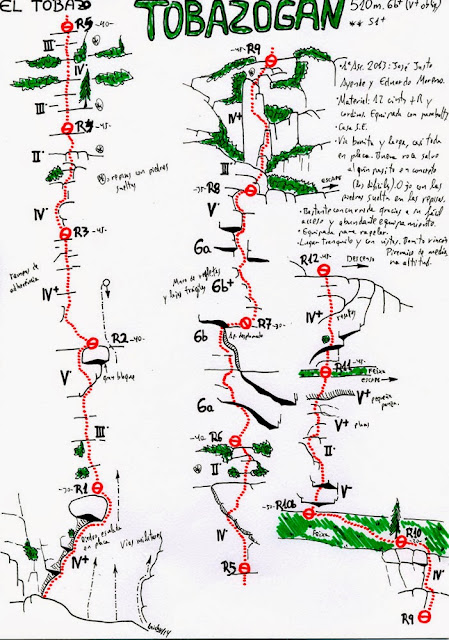 EL TOBAZO
TOBAZOGAN
510m. 6b+ (V+oblig)
** S1+
• 1ª Asc. 2013: José Justo
Ayende y Eduardo Moreno.
• Material: 12 cints + R y
cordino. Equipada con parabolts
• Cara S.E.
• Vía bonita y larga, casi toda
en placa. Buena roca salvo
algún pasito en concreto
(los difíciles). Ojo con las
piedras sueltas en las repisas.
• Bastante concurrida gracias a su fácil
acceso y abundante equipamiento.
• Equipada para rapelar.
• Lugar tranquilo y con vistas. Bonito rincón
Pirenaico de media
altitud.
R5
III
IV
III
R4 -45-
II
= repisas con piedras
sueltas
IV
R3 -45-
IV+
R2 -40-
gran bloque
V
III
-30- R1
en placa
IV+
Vías
R9 -45-
IV+
-35- R8
escape
V
6a
6b+
Muro de
R7 -30-
6b
6a
-40- R6
II
IV
R5
R12 -40-
DESCENSO
IV+
R11 -45-
Feixa
escape
V+
pequeña
V+ placa
II
V-
-30- R10b
Feixa
R10
IV
R9